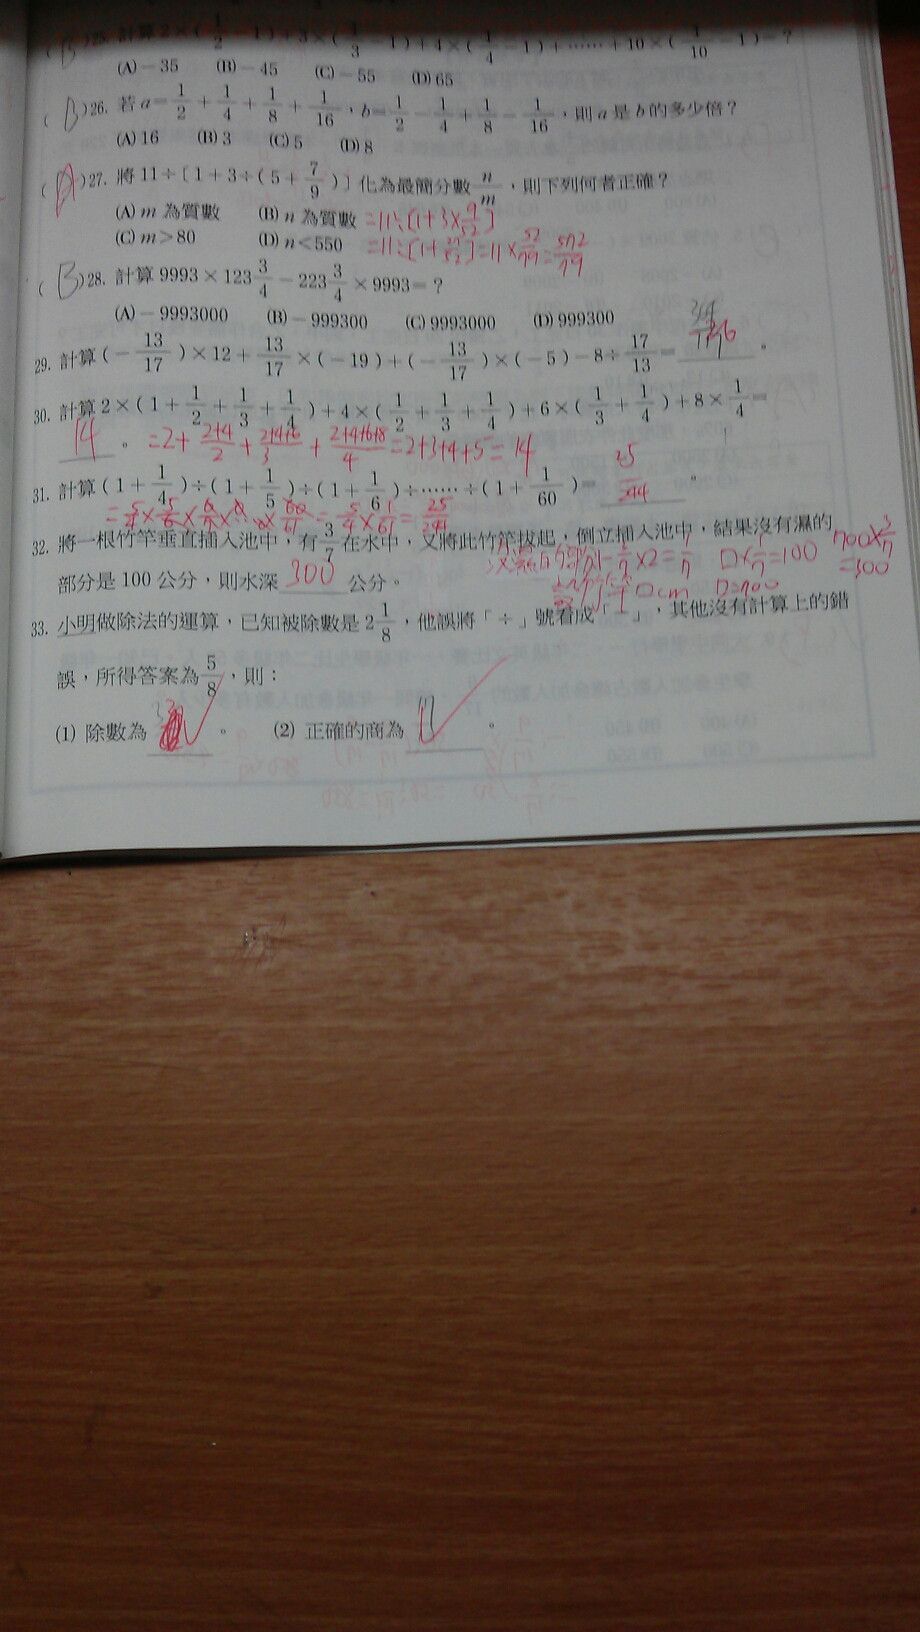 (B)25. 計算2×(1/2-1)+3×(1/3-1)+4×(1/4-1)+……+10×(1/10-1)=?
(A)-35 (B)-45 (C)-55 (D)65
(B)26. 若a=1/2+1/4+1/8+1/16,b=1/2-1/4+1/8-1/16,則a是b的多少倍?
(A)16 (B)3 (C)5 (D)8
( )27. 將11÷〔1+3÷(5+7/9)〕化為最簡分數n/m,則下列何者正確?
(A) m 為質數 (B) n 為質數 =11÷[1+3×9/52]
(C) m>80 (D) n<550 =11÷[1+27/52]=11×52/79=572/79
(B)28. 計算 9993×123 3/4-223 3/4×9993=?
(A)-9993000 (B)-999300 (C)9993000 (D)999300
29. 計算(-13/17)×12+13/17×(-19)+(-13/17)×(-5)-8÷17/13= 。
30. 計算2×(1+1/2+1/3+1/4)+4×(1/2+1/3+1/4)+6×(1/3+1/4)+8×1/4=
14 。 =2+2+4/2+2+4+6/3+2+4+6+8/4=2+3+4+5=14
31. 計算(1+1/4)÷(1+1/5)÷(1+1/6)÷……÷(1+1/60)= 25/244 。
=5/4×5/6×6/7×…×60/61=5/4×5/61=25/244
32. 將一根竹竿垂直插入池中,有3/7在水中,又將此竹竿拔起,倒立插入池中,結果沒有濕的
1-3/7×2=1/7 □×1/7=100 700×3/7
部分是 100 公分,則水深 300 公分。 □cm □=700 =300
33. 小明做除法的運算,已知被除數是2 1/8,他誤將「÷」號看成「-」,其他沒有計算上的錯
誤,所得答案為5/8,則:
(1) 除數為 。 (2) 正確的商為 。